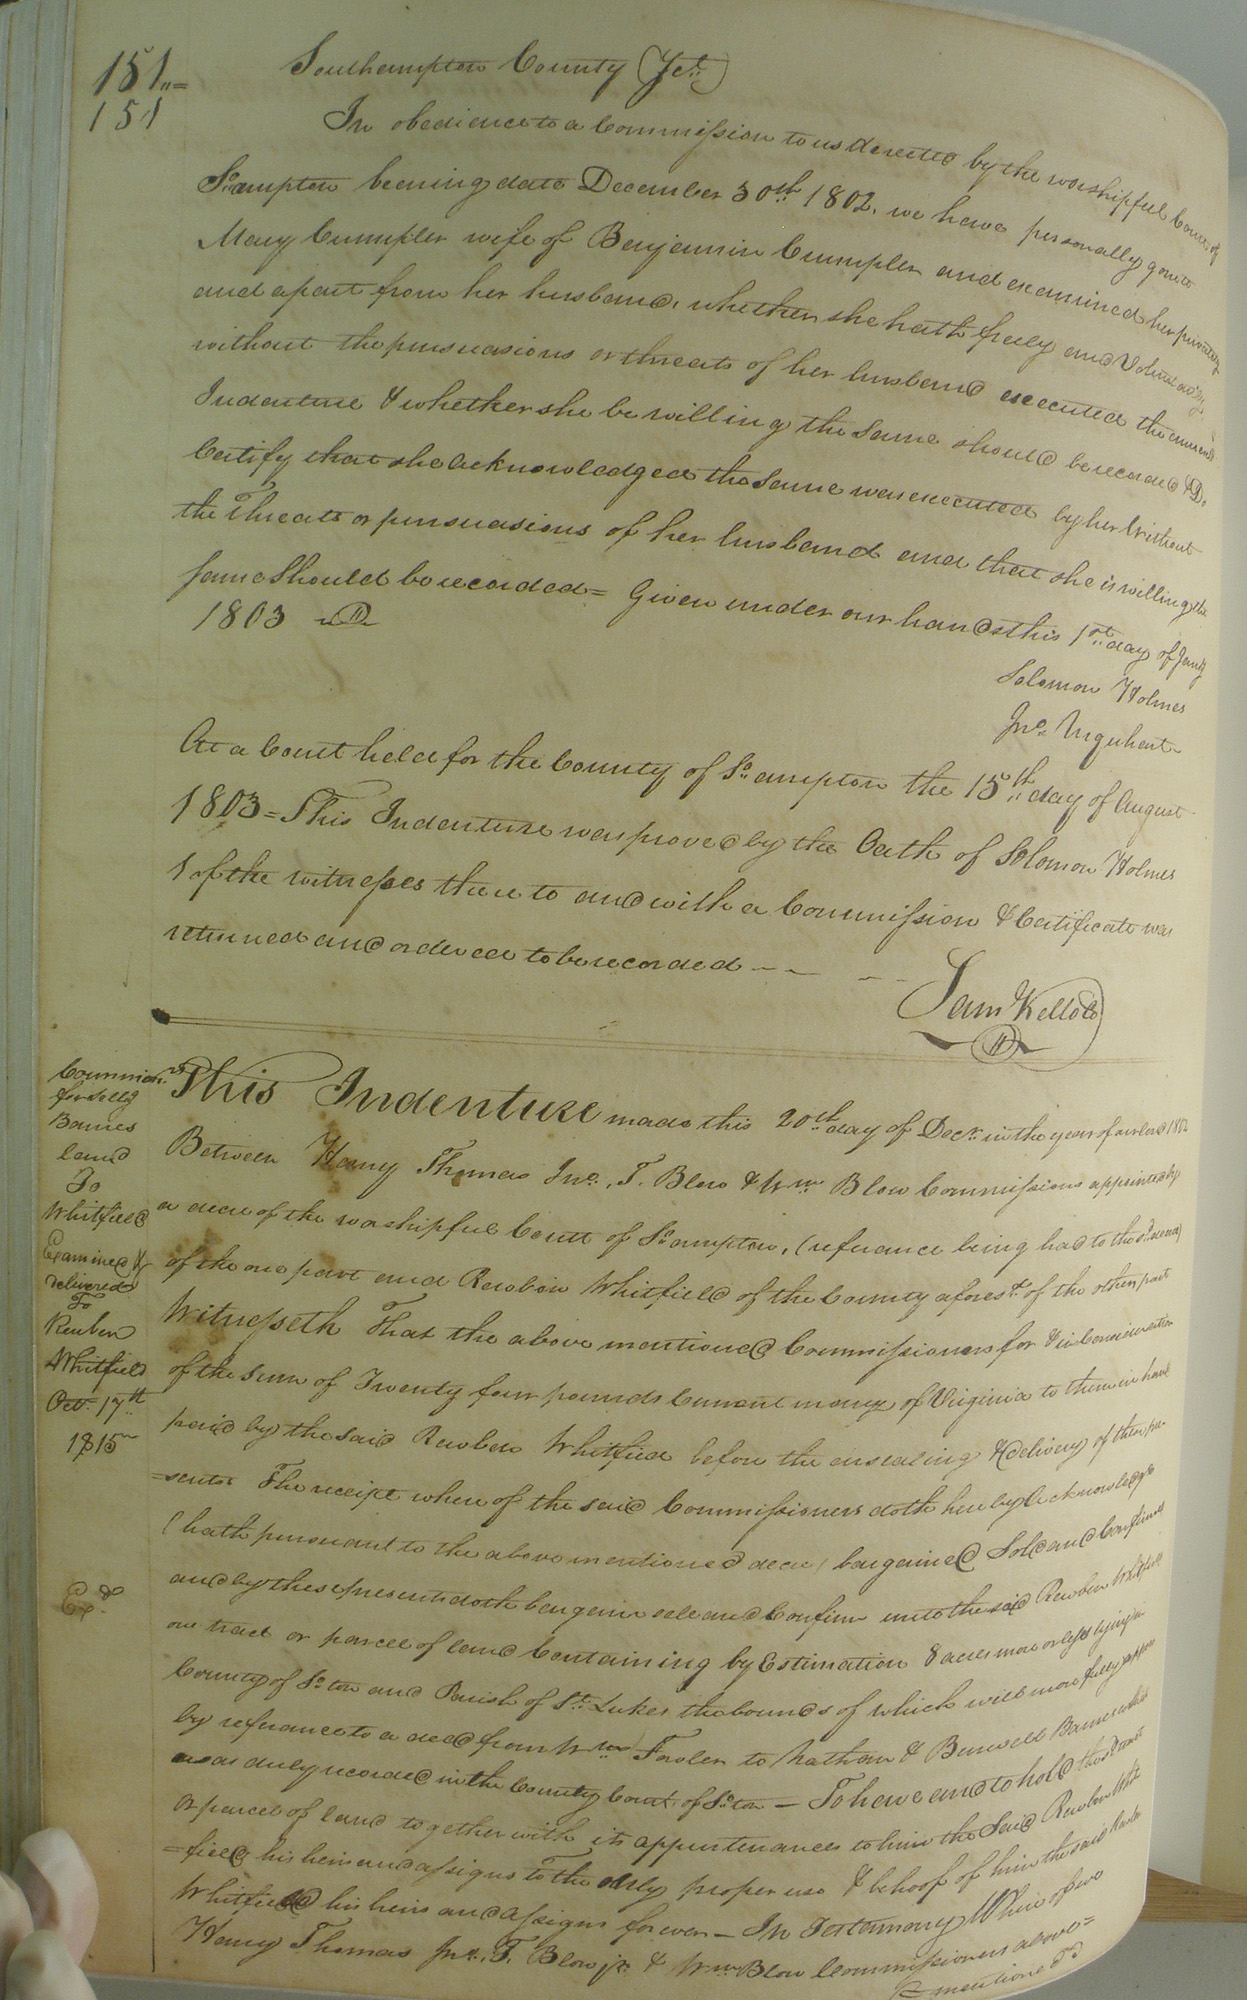 151
151
Southampton County (Sct)
In obedience to a Commission to us directed by the worshipful Court of
So. ampton bearing date December 30th 1802. we have personally gone to
Mary Crumpler wife of Benjamin Crumpler and examined her privately
and apart from her husband, whether she hath freely and Voluntarily
without the pursuasions or threats of her husband executed the annexed
Indenture & whether she be willing the same should be recorded & Do
Certify that she acknowledged the same was executed by her Without
the Threats or pursuasions of her husband and that she is willing the
same Should be recorded = Given under our hands this 1st day of Jany
1803
Solomon Holmes
Jno. Urquhart
At a Court held for the County of So. ampton the 15th day of August
1803 = This Indenture was proved by the Oath of Solomon Holmes
1 of the witnesses there to and with a Commission & Certificate was
returned and ordered to be recorded
Sam Kello
This Indenture made this 20th day of Decr. in the year of our lord 1802
Between Henry Thomas Jno. T. Blow & Wm Blow Commissions appointed by
a decree of the worshipful Court of So. ampton, (referance being had to the sd. decree)
of the one part and Rewbin Whitfield of the County aforesd. of the other part
Witnesseth That the above mentioned Commissioners for & in Consideration
of the Sum of Twenty four pounds Current money of Virginia to them in hand
paid by the said Rewben Whitfield before the ensealing & delivery of these pre-
=sents The receipt where of the said Commissioners doth here by Acknowledge
(hath pursuant to the above mentioned decree) bargained Sold and Confirmed
and by these presents doth bargain sell and Confirm unto the said Rewben Whitfield
one tract or parcel of land Containing by Estimation 8 acres more or less lying in
County of So. ton and Parish of St. Lukes the bounds of which will more fully appear
by referance to a deed from Wm Fowler to Nathan & Burwell Barnes which
was duly recorded in the County Court of So. ton — To have and to hold the sd tract
or parcel of land together with its appurtenances to him the Said Rewben Whit
=field his heirs and assigns To the only proper use & behoof of him the said Reuben
Whitfield his heirs and assigns forever — In Testamony Where of we
Henry Thomas Jno. T. Blow jr. & Wm Blow Commissioners above =
mentioned
Commisrs
for selg
Barnes
land
To
Whitfield
Examined &
delivered
To
Reuben
Whitfield
Oct. 17th
1815
Exd.